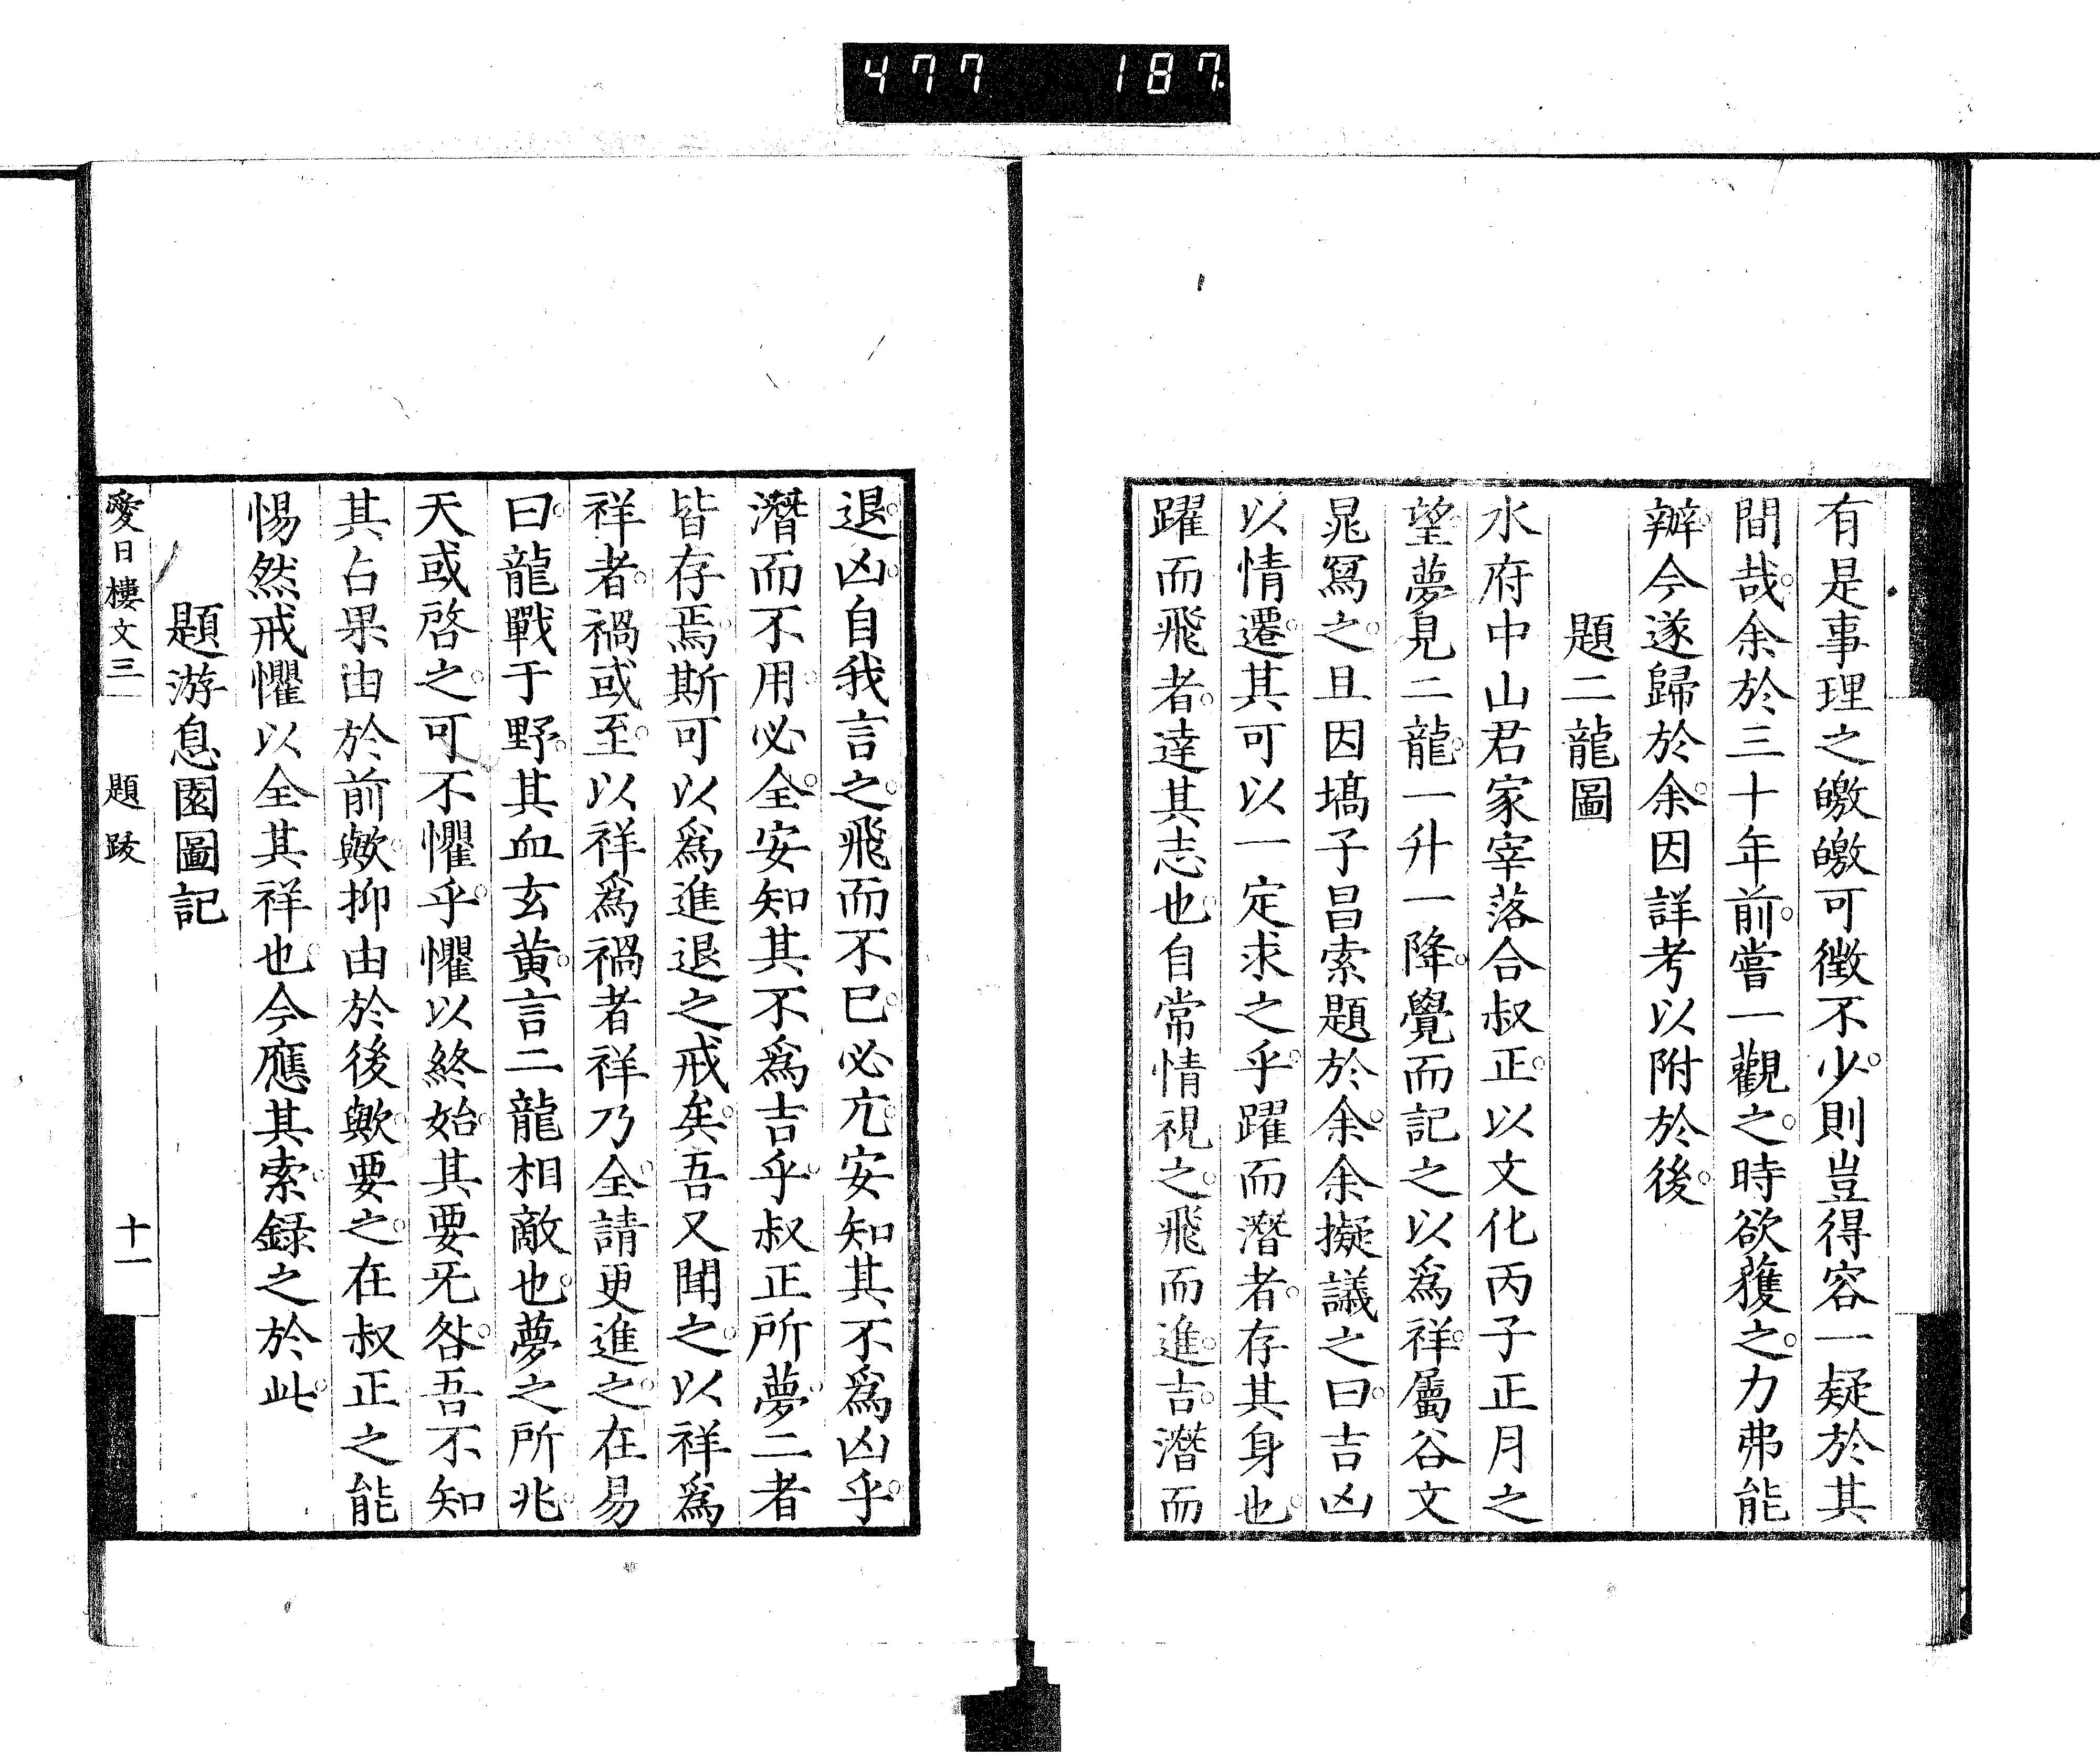 477 187.
有是事理之皦皦可徵不少。則豈得容一疑於其
間哉。余於三十年前。嘗一觀之。時欲獲之。力弗能
辦。今遂歸於余。因詳考以附於後。
題二龍圖
水府中山君家宰落合叔正。以文化丙子正月之
望。夢見二龍。一升一降。覺而記之以爲祥。屬谷文
晁寫之。且因塙子昌索題於余。余擬議之曰。吉凶
以情遷。其可以一定求之乎。躍而潛者。存其身也。
躍而飛者。達其志也。自常情視之。飛而進。吉。潛而
退。凶。自我言之。飛而不已。必亢。安知其不爲凶乎。
潛而不用。必全。安知其不爲吉乎。叔正所夢。二者
皆存焉。斯可以爲進退之戒矣。吾又聞之。以祥爲
祥者。禍或至。以祥爲禍者祥乃全。請更進之。在易
曰。龍戰于野。其血玄黄。言二龍相敵也。夢之所兆。
天或啓之。可不懼乎。懼以終始。其要无咎。吾不知
其占果由於前歟。抑由於後歟。要之。在叔正之能
惕然戒懼以全其祥也。今應其索。録之於此。
題游息園圖記
愛日樓文三 題跋 十一